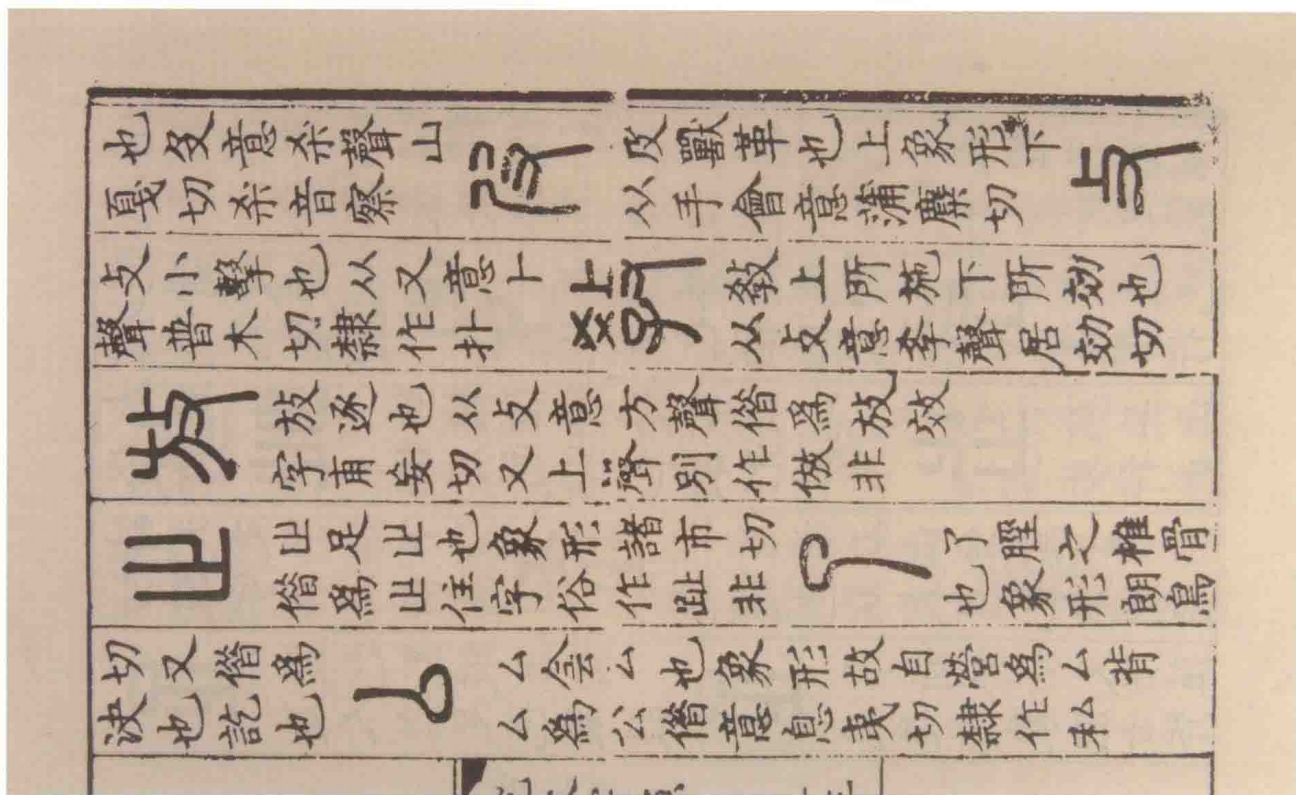 也殳意杀聲山
戛切杀音察
皮
皮獸革也上象形下
从手會意蒲麋切
攴
攴小擊也从又意卜
聲普木切隸作扑
敎
敎上所施下所効也
从攴意孝聲居効切
放
放逐也从攴意方聲借爲放效
字甫妄切又上聲別作倣非
止
止足止也象形諸市切
借爲止住字俗作趾非
了
了脛之椎骨
也象形朗鳥
切又借爲
決也訖也
厶
厶侌厶也象形故自營爲厶背
厶爲公借意息夷切隸作私